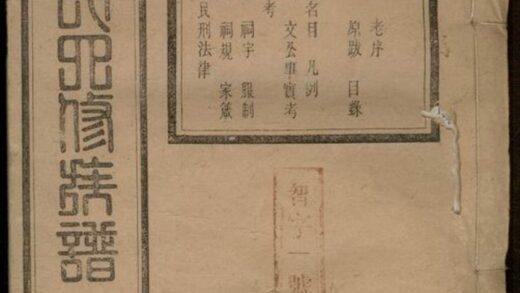 老序
原跋 目錄
名目 凡例
文公事實考
考
祠宇 服制
祠規 家箴
民刑法律
氏四修族譜
智字一號